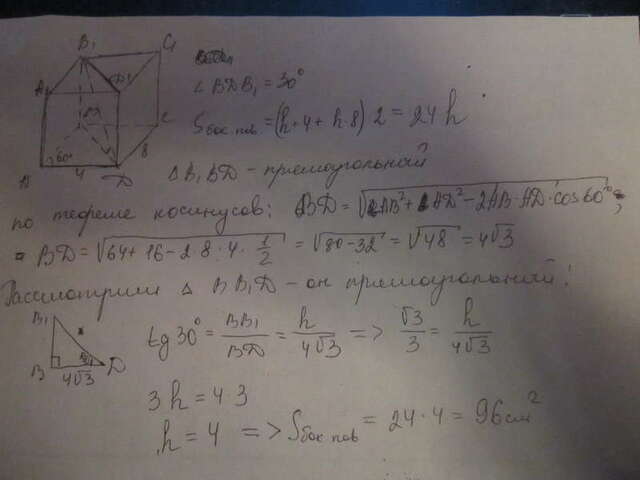 B₁ C₁
A₁ D₁
B C
60° 8
A 4 D
∠ BDB₁ = 30°
Sбок.пов. = (h·4 + h·8) 2 = 24h
△ B₁BD – прямоугольный
по теореме косинусов: BD = √(AB² + AD² – 2AB·AD·cos60°) ;
BD = √(64 + 16 – 2·8·4·1/2) = √(80 – 32) = √48 = 4√3
Рассмотрим △ BB₁D – он прямоугольный!
B₁
B 4√3 D
tg 30° = BB₁/BD = h/4√3 => √3/3 = h/4√3
3h = 4·3
h = 4 => Sбок пов = 24·4 = 96 см²